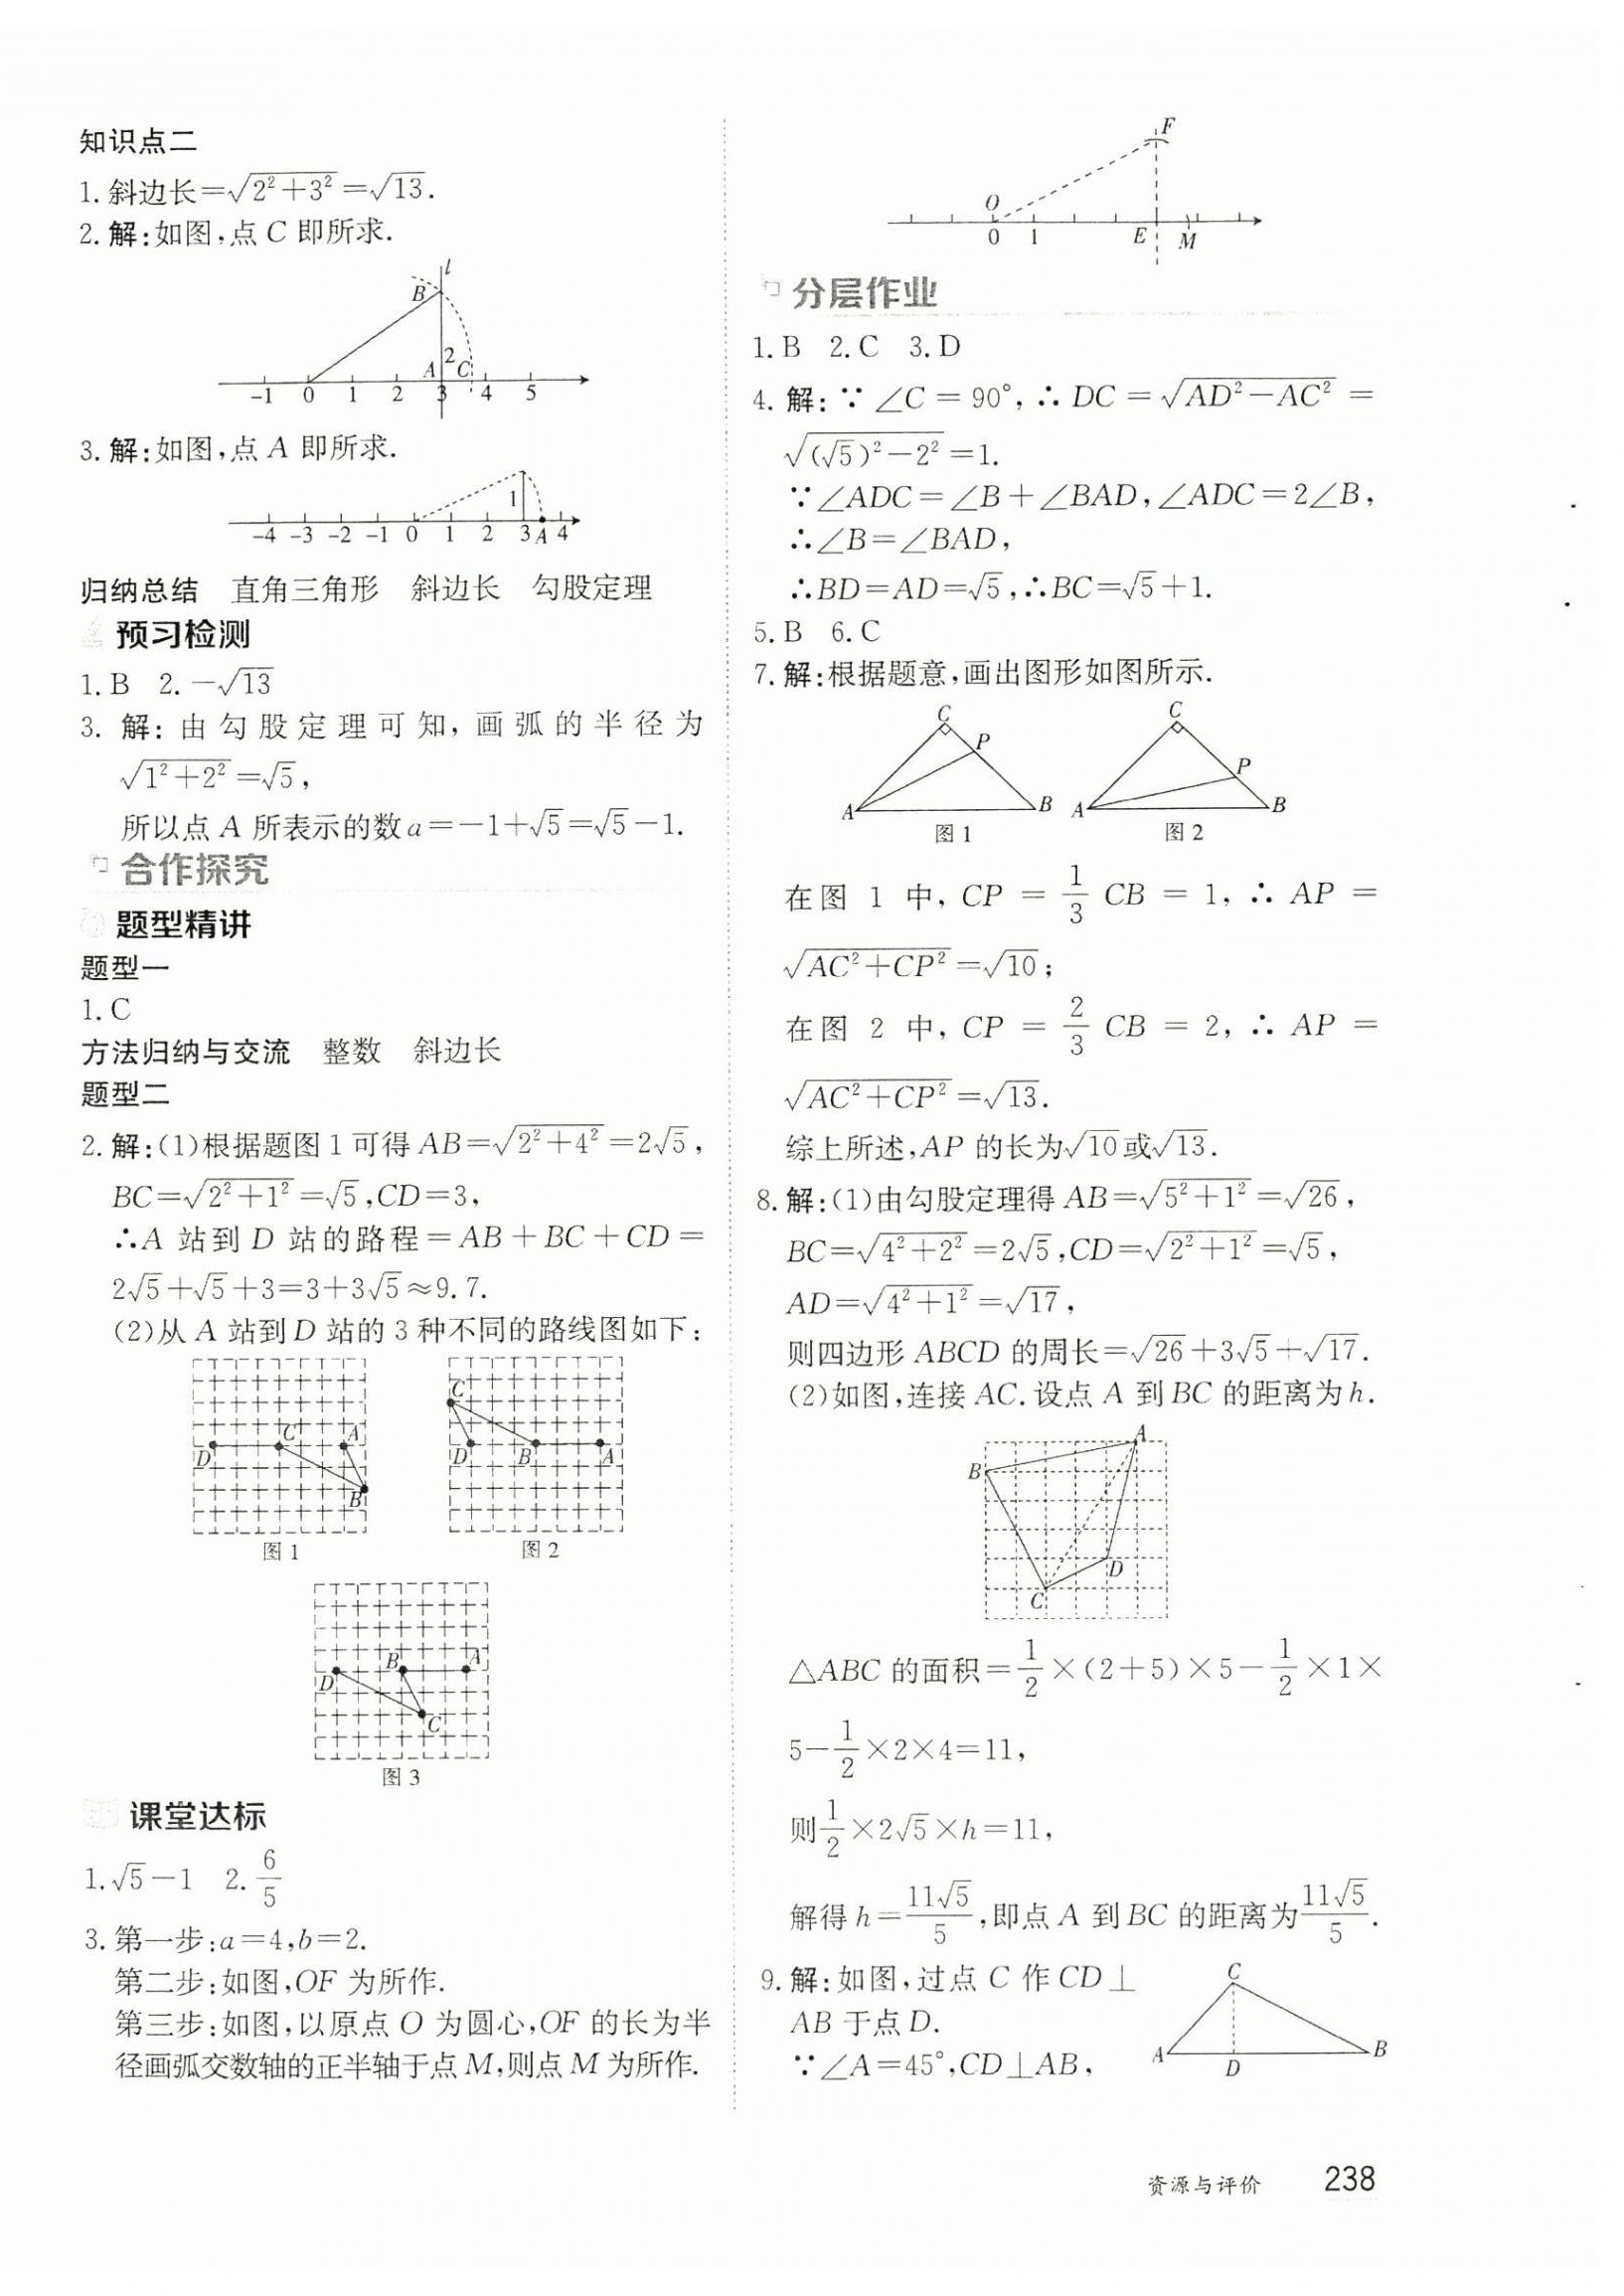 知识点二
1.斜边长=√(2²+3²)=√13.
2.解:如图,点C即所求.
l
B
A 2 C
-1 0 1 2 3 4 5
3.解:如图,点A即所求.
1
-4 -3 -2 -1 0 1 2 3 A 4
归纳总结 直角三角形 斜边长 勾股定理
预习检测
1.B 2.-√13
3. 解:由勾股定理可知,画弧的半径为
√(1²+2²)=√5,
所以点A所表示的数a=-1+√5=√5-1.
合作探究
题型精讲
题型一
1.C
方法归纳与交流 整数 斜边长
题型二
2.解:(1)根据题图1可得AB=√(2²+4²)=2√5,
BC=√(2²+1²)=√5,CD=3,
∴A站到D站的路程=AB+BC+CD=
2√5+√5+3=3+3√5≈9.7.
(2)从A站到D站的3种不同的路线图如下:
D C A
B
图1
C
D B A
图2
D B A
C
图3
课堂达标
1.√5-1 2. 6/5
3.第一步:a=4,b=2.
第二步:如图,OF为所作.
第三步:如图,以原点O为圆心,OF的长为半
径画弧交数轴的正半轴于点M,则点M为所作.
F
O
0 1 E M
分层作业
1.B 2.C 3.D
4. 解:∵∠C=90°,∴DC=√(AD²-AC²)=
√((√5)²-2²)=1.
∵∠ADC=∠B+∠BAD,∠ADC=2∠B,
∴∠B=∠BAD,
∴BD=AD=√5,∴BC=√5+1.
5.B 6.C
7.解:根据题意,画出图形如图所示.
C P A B
图1
C P A B
图2
在图1中,CP=1/3CB=1,∴AP=
√(AC²+CP²)=√10;
在图2中,CP=2/3CB=2,∴AP=
√(AC²+CP²)=√13.
综上所述,AP的长为√10或√13.
8.解:(1)由勾股定理得AB=√(5²+1²)=√26,
BC=√(4²+2²)=2√5,CD=√(2²+1²)=√5,
AD=√(4²+1²)=√17,
则四边形ABCD的周长=√26+3√5+√17.
(2)如图,连接AC.设点A到BC的距离为h.
A
B
D
C
△ABC的面积=1/2×(2+5)×5-1/2×1×
5-1/2×2×4=11,
则1/2×2√5×h=11,
解得h=11√5/5,即点A到BC的距离为11√5/5.
9.解:如图,过点C作CD⊥
AB于点D.
∵∠A=45°,CD⊥AB,
C
A D B
资源与评价 238